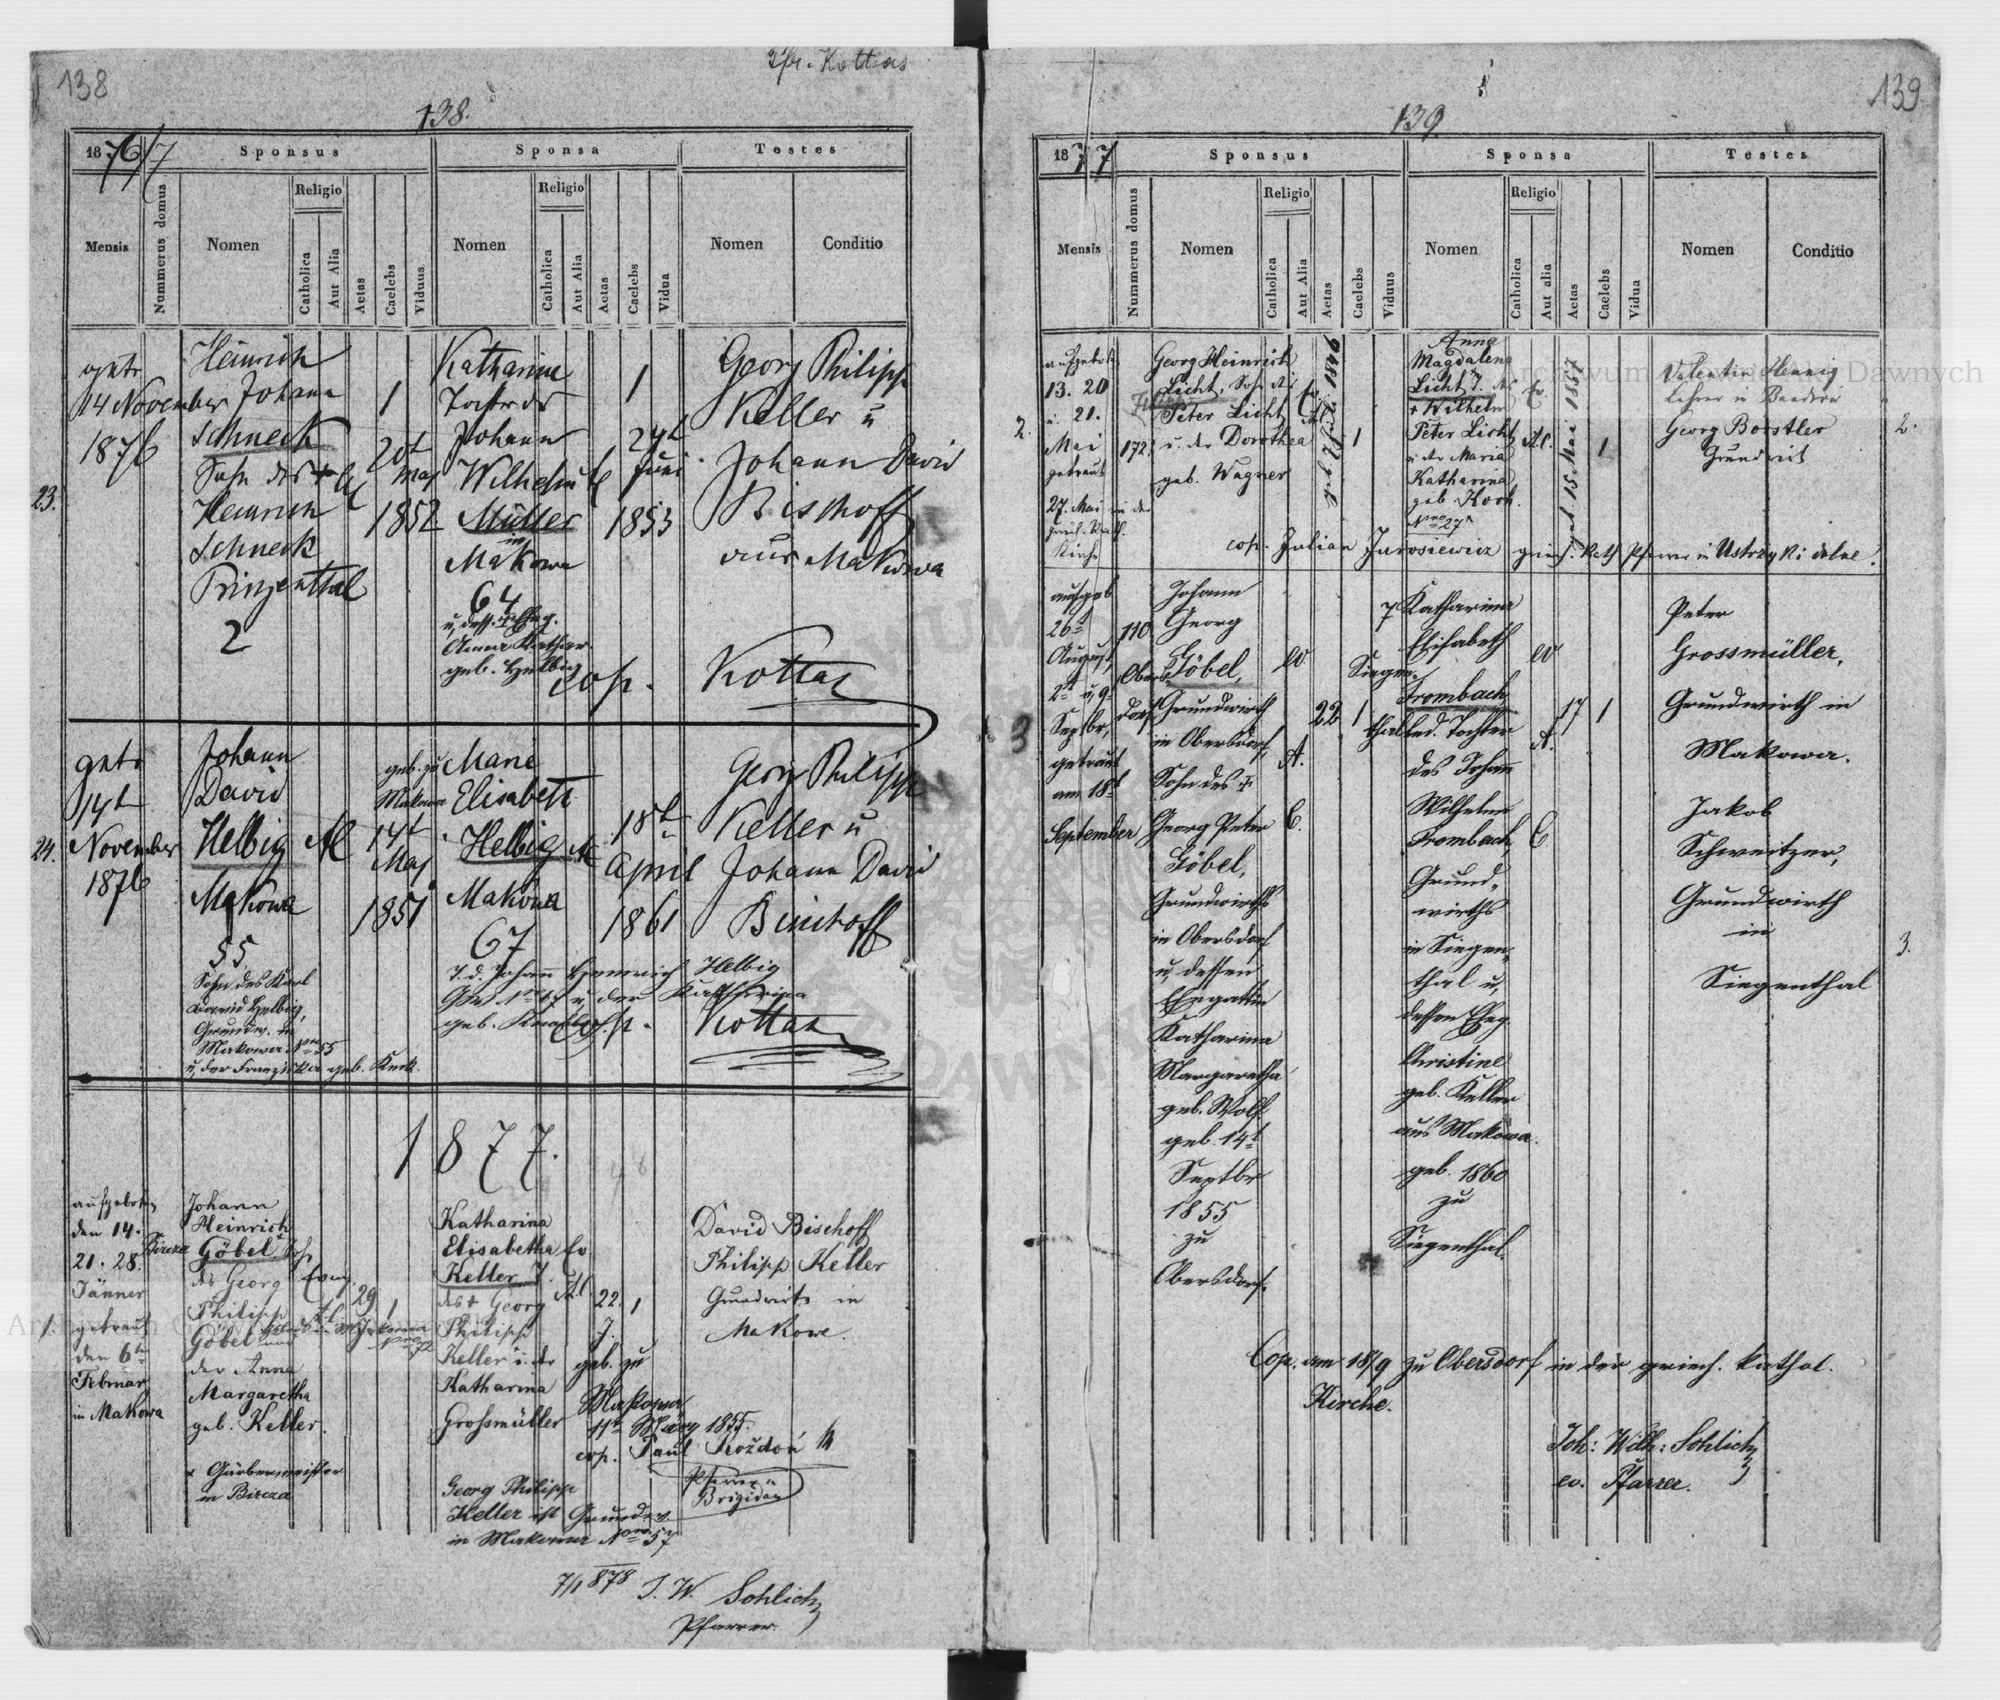 138
Ipr. Kottas
138.
1876/7
Sponsus
Sponsa
Testes
Mensis
Nummerus domus
Nomen
Religio
Catholica
Aut Alia
Aetas
Caelebs
Viduus
Nomen
Religio
Catholica
Aut Alia
Aetas
Caelebs
Vidua
Nomen
Conditio
23.
getr
14 November
1876
Heinrich
Johann
Schneck
Sohn des +
Heinrich
Schneck
Prinzenthal
2
AC
1
20t
May
1852
Katharina
Tochter des
Johann
Wilhelm
Müller
in
Makowa
64
u. dess. + Eheg.
Anna Kathar.
geb. Helbig
AC
1
24t
Juni
1853
Georg Philipp
Keller u
Johann David
Bischoff
aus Makowa
cop. Kottas
24.
getr
14t
November
1876
Johann
David
Helbig
Makowa
55
Sohn des Karl
David Helbig,
Grundw. in
Makowa Nro 55
u. der Franziska geb. Keck.
AC
geb. zu
Makowa
14t
May
1851
Marie
Elisabeth
Helbig
Makowa
67
T. d. Johann Heinrich Helbig
Gdw Nro 67 u der Katharina
geb.
AC
18t
April
1861
Georg Philipp
Keller u
Johann David
Bischoff
cop. Kottas
1877.
1.
aufgeboten
den 14.
21. 28.
Jänner
getraut
den 6ten
Februar
in Makowa
Bircza
Johann
Heinrich
Göbel, Sohn
des Georg
Philipp
Göbel
der Anna
Margaretha
geb. Keller.
+ Gärbermeister
in Bircza
Evang.
AC
29
1
Katharina
Elisabetha
Keller T.
des + Georg
Philipp
Keller u. der
Katharina
Grossmüller
Ev
AC.
22.
1
J.
geb. zu
Makowa
11t März 1855.
cop. Paul Kożdoń
Pfarrer in
Brigidau
Georg Philipp
Keller ist Grundw.
in Makowa Nro 57
David Bischoff
Philipp Keller
Grundwirte in
Makowa.
7/1 878 J. W. Schlich
Pfarrer.
139
139
1877
Sponsus
Sponsa
Testes
Mensis
Nummerus domus
Nomen
Religio
Catholica
Aut Alia
Aetas
Caelebs
Viduus
Nomen
Religio
Catholica
Aut alia
Aetas
Caelebs
Vidua
Nomen
Conditio
2.
aufgeboten
13. 20
u. 21.
Mai
getraut
27. Mai in der
griech. Kath.
Kirche
172.
Georg Heinrich
Licht, Sohn des
Peter Licht
u. der Dorothea
geb. Wagner
Ev.
AC.
1
Anna
Magdalena
Licht T. des
+ Wilhelm
Peter Licht
u der Maria
Katharina
geb. Koch.
Nro 27
Ev.
AC.
geb. 15. Mai 1857
1
Valentin Hennig
Lehrer in Bandrów
Georg Borstler
Grundwirt
2.
cop. Julian Jurosiewicz griech. Kath Pfarrer in Ustrzyki dolne.
3
aufgeb
26t
August,
2t u, 9t
Septbr,
getraut
am 18t
September
110.
Obers-
dorf
Johann
Georg
Göbel,
Grundwirth
in Obersdorf,
Sohn des +
Georg Peter
Göbel,
Grundwirths
in Obersdorf
u, dessen
Ehegattin
Katharina
Margaretha
geb. Wolf.
geb. 14t
Septbr
1855
zu
Obersdorf.
ev
A.
C.
22
1
7
Siegen-
thal
Katharina
Elisabeth
Frombach
led. Tochter
des Johann
Wilhelm
Frombach,
Grund-
wirths
in Siegen-
thal u,
dessen Eheg
Christine
geb. Keller
aus Makowa.
geb. 1860
zu
Siegenthal.
ev
A.
C
17
1
Peter
Grossmüller,
Grundwirth in
Makowa.
Jakob
Schweitzer,
Grundwirth
in
Siegenthal
3.
Cop. am 18/9 zu Obersdorf in der griech. kathol.
Kirche.
Joh: Wilh: Schlich
ev. Pfarrer.